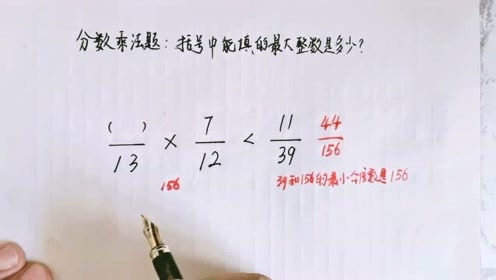 分数乘法题：括号中能填的最大整数是多少？
( )/13 × 7/12 < 11/39 44/156
156
39和156的最小公倍数是156